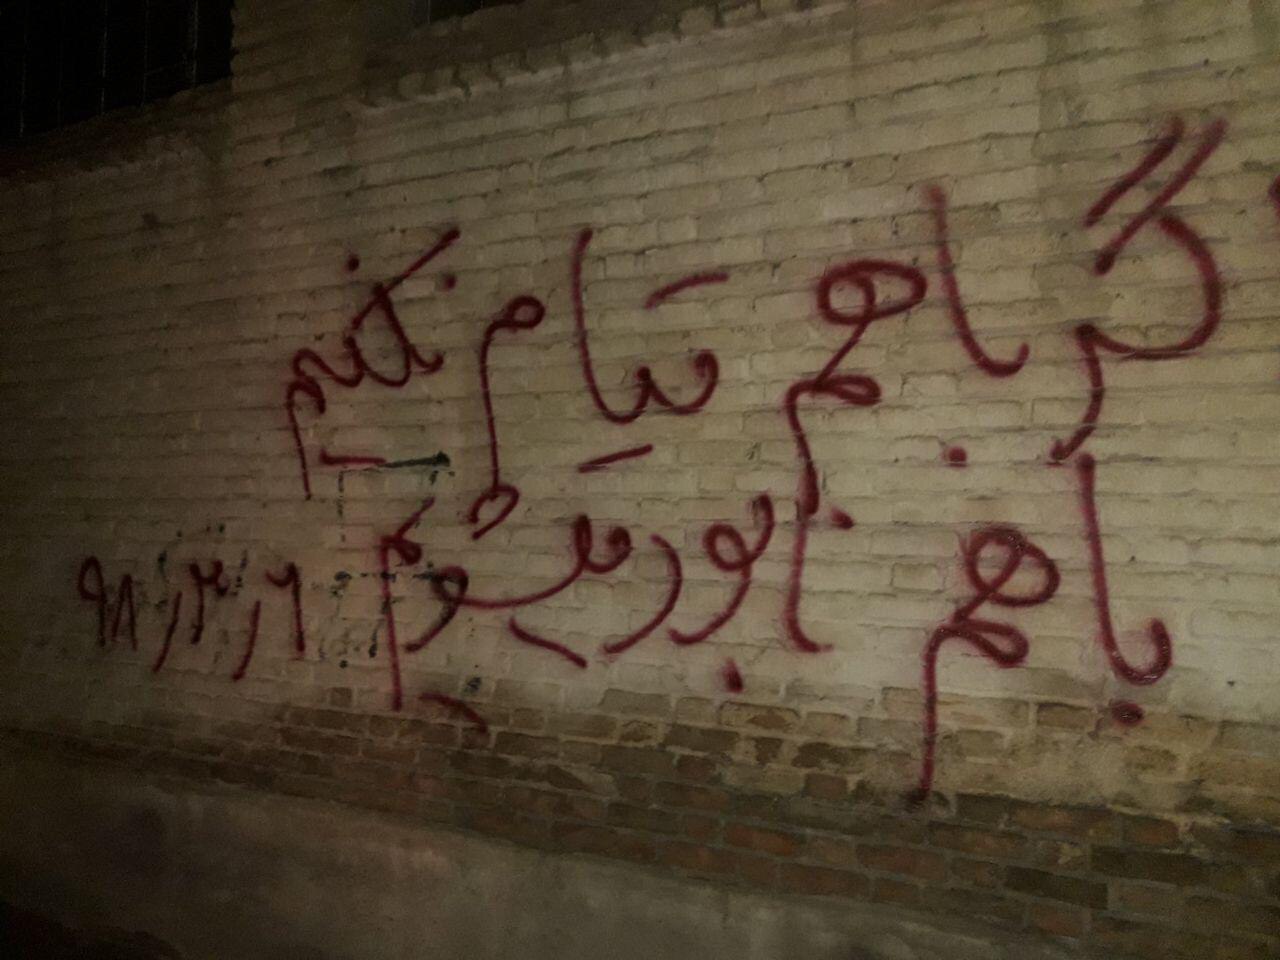 گر باهم قیام نکنیم
باهم نابود میشویم
۹۸/۳/۶